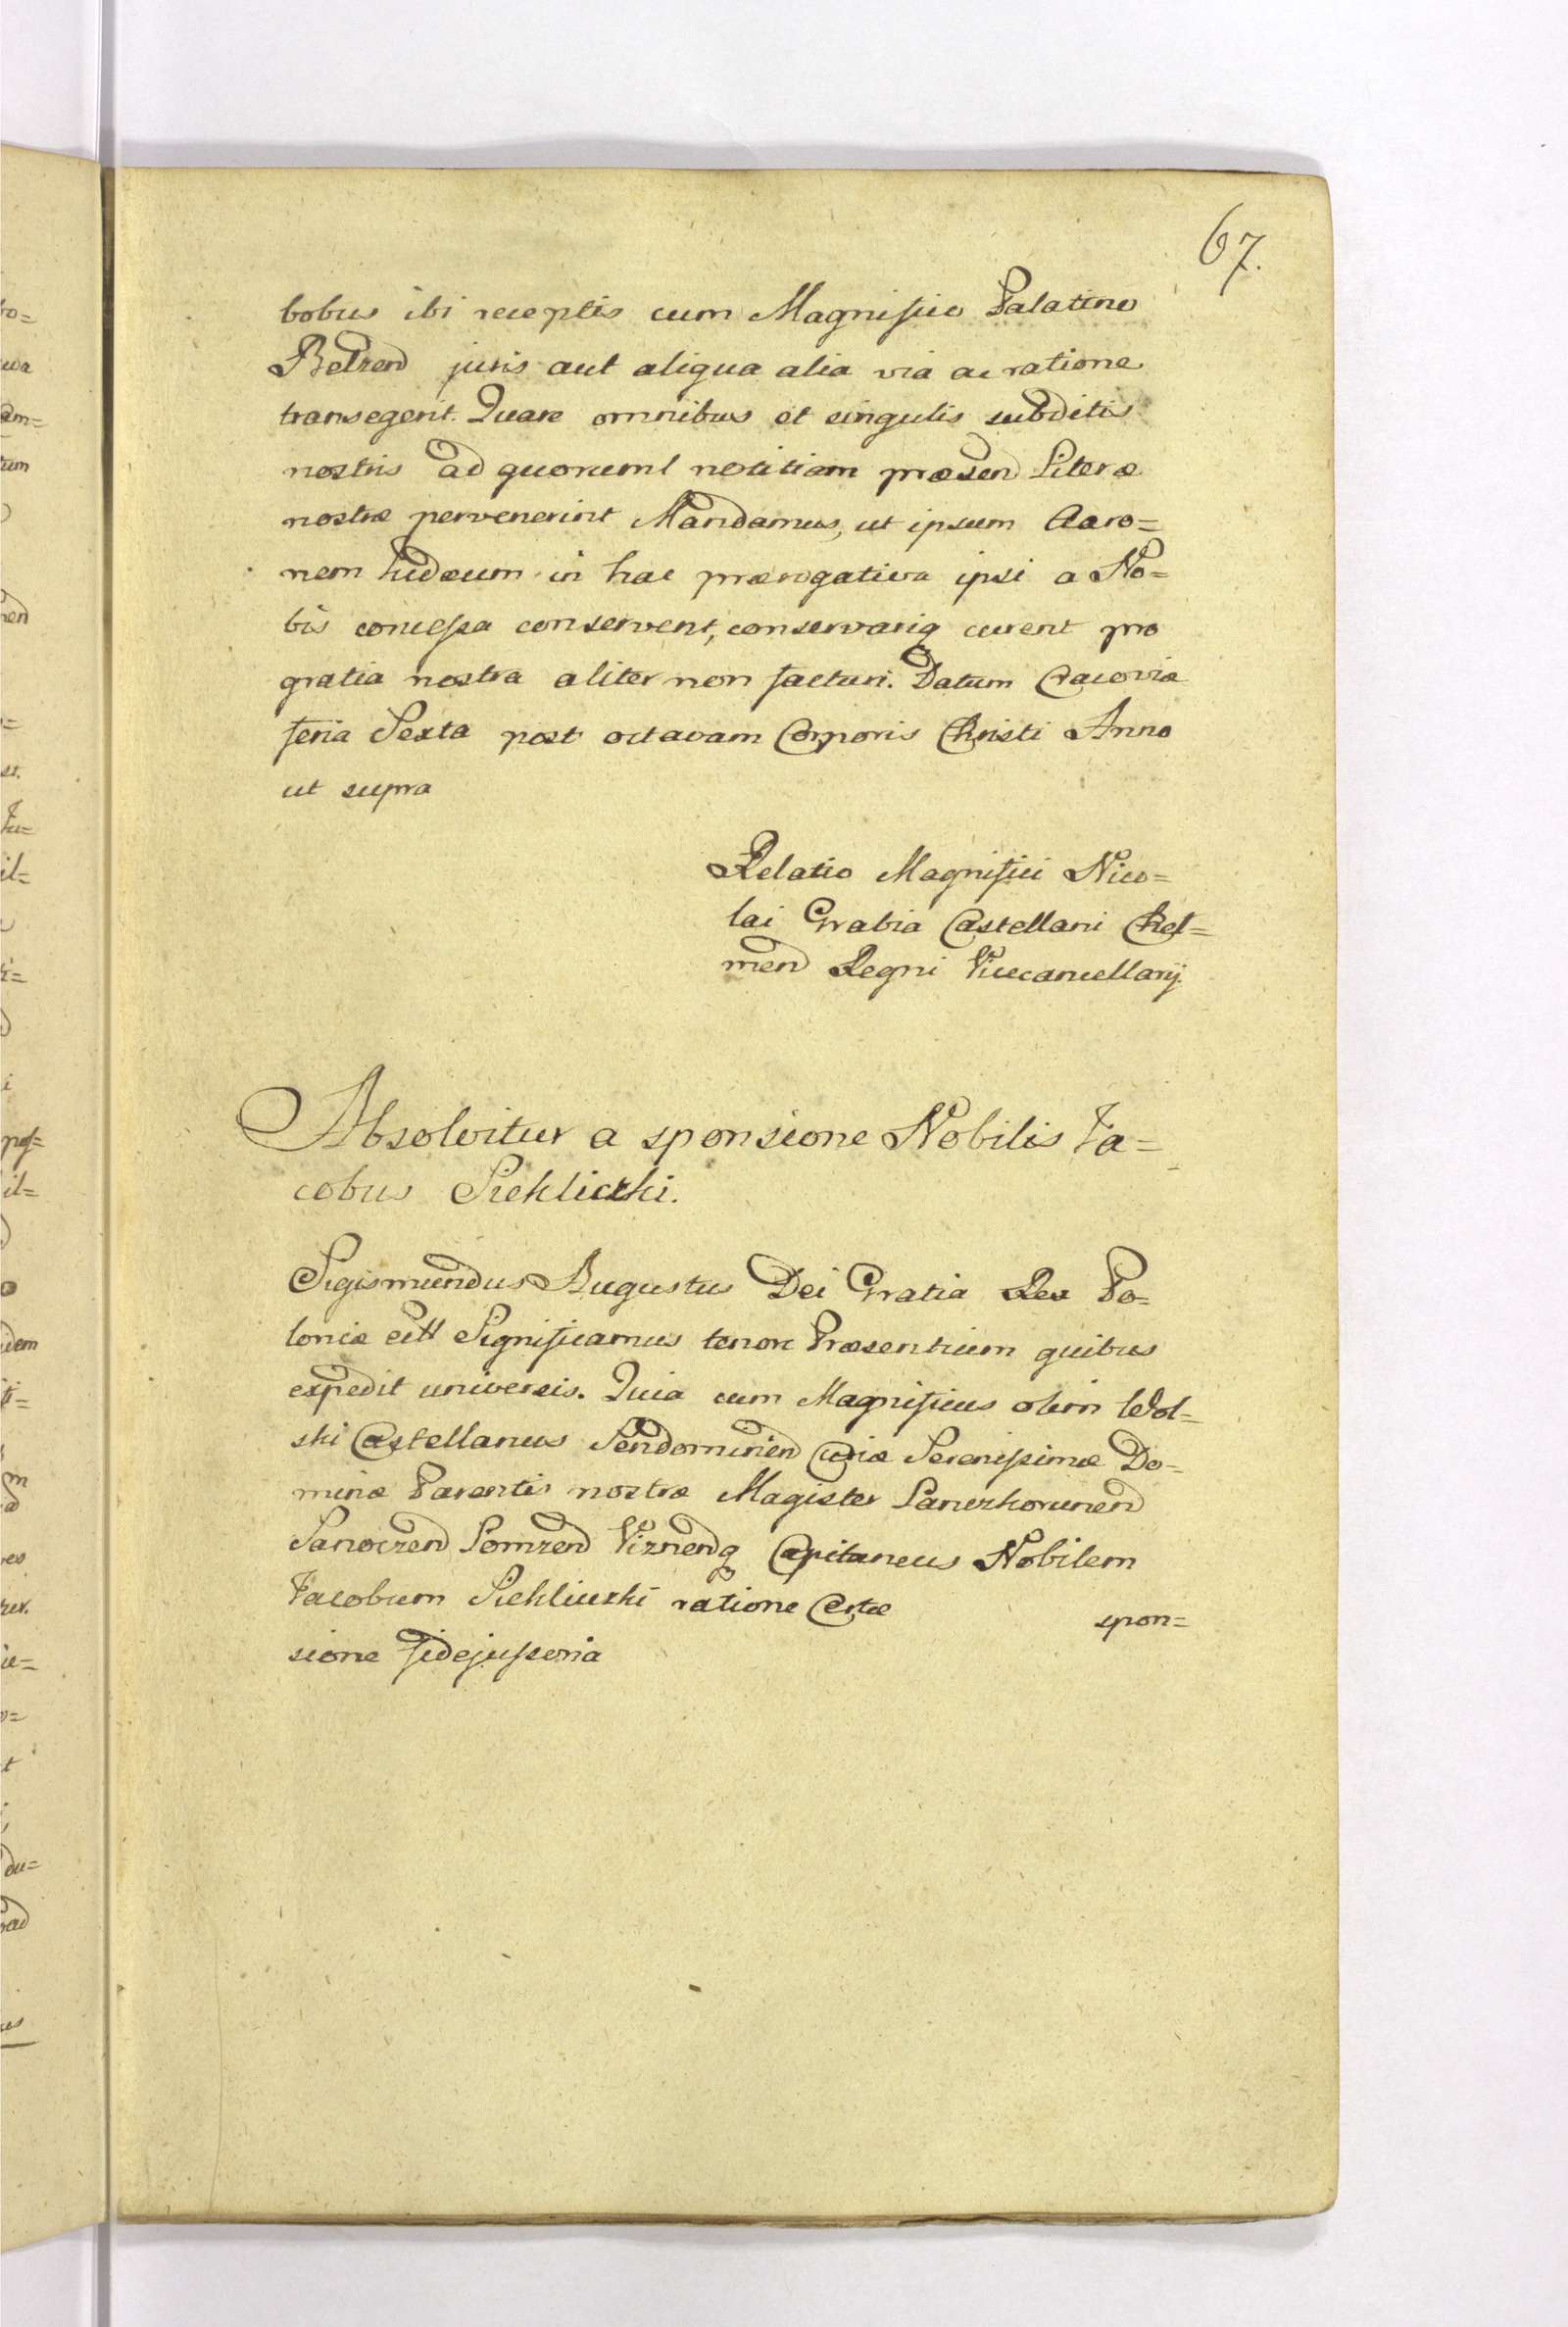 67.
bobus ibi receptis cum Magnifico Palatino
Belzen juris aut aliqua alia via ac ratione
transegerit. Quare omnibus et singulis subditis
nostris ad quorum notitiam præsen Literæ
nostræ pervenerint Mandamus, ut ipsum Aaro=
nem Iudæum in hac prærogativa ipsi a No=
bis concessa conservent, conservariq curent pro
gratia nostra aliter non facturi. Datum Cracoviæ
feria Sexta post octavam Corporis Christi Anno
ut supra
Relatio Magnifici Nico=
lai Grabia Castellani Chel=
men Regni Vicecancellarij.
Absolvitur a sponsione Nobilis Ia=
cobus Siekliczki.
Sigismundus Augustus Dei Gratia Rex Po=
loniæ ett Significamus tenore Præsentium quibus
expedit universis. Quia cum Magnificus olim Wol=
ski Castellanus Sendomirien Curiæ Serenissimæ Do=
minæ Parentis nostræ Magister Lanczkorunen
Sanoczen Lomzen Viznenq Capitaneus Nobilem
Iacobum Siekliczki ratione Certæ spon=
sione fidejussoria